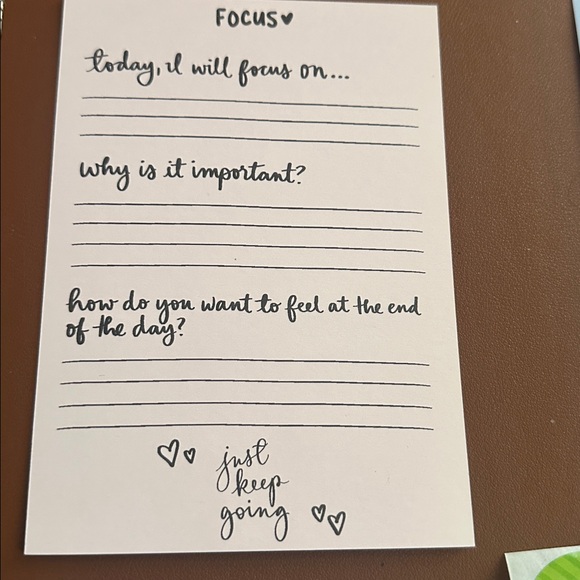 FOCUS♥
today, I will focus on...
why is it important?
how do you want to feel at the end
of the day?
just
keep
going